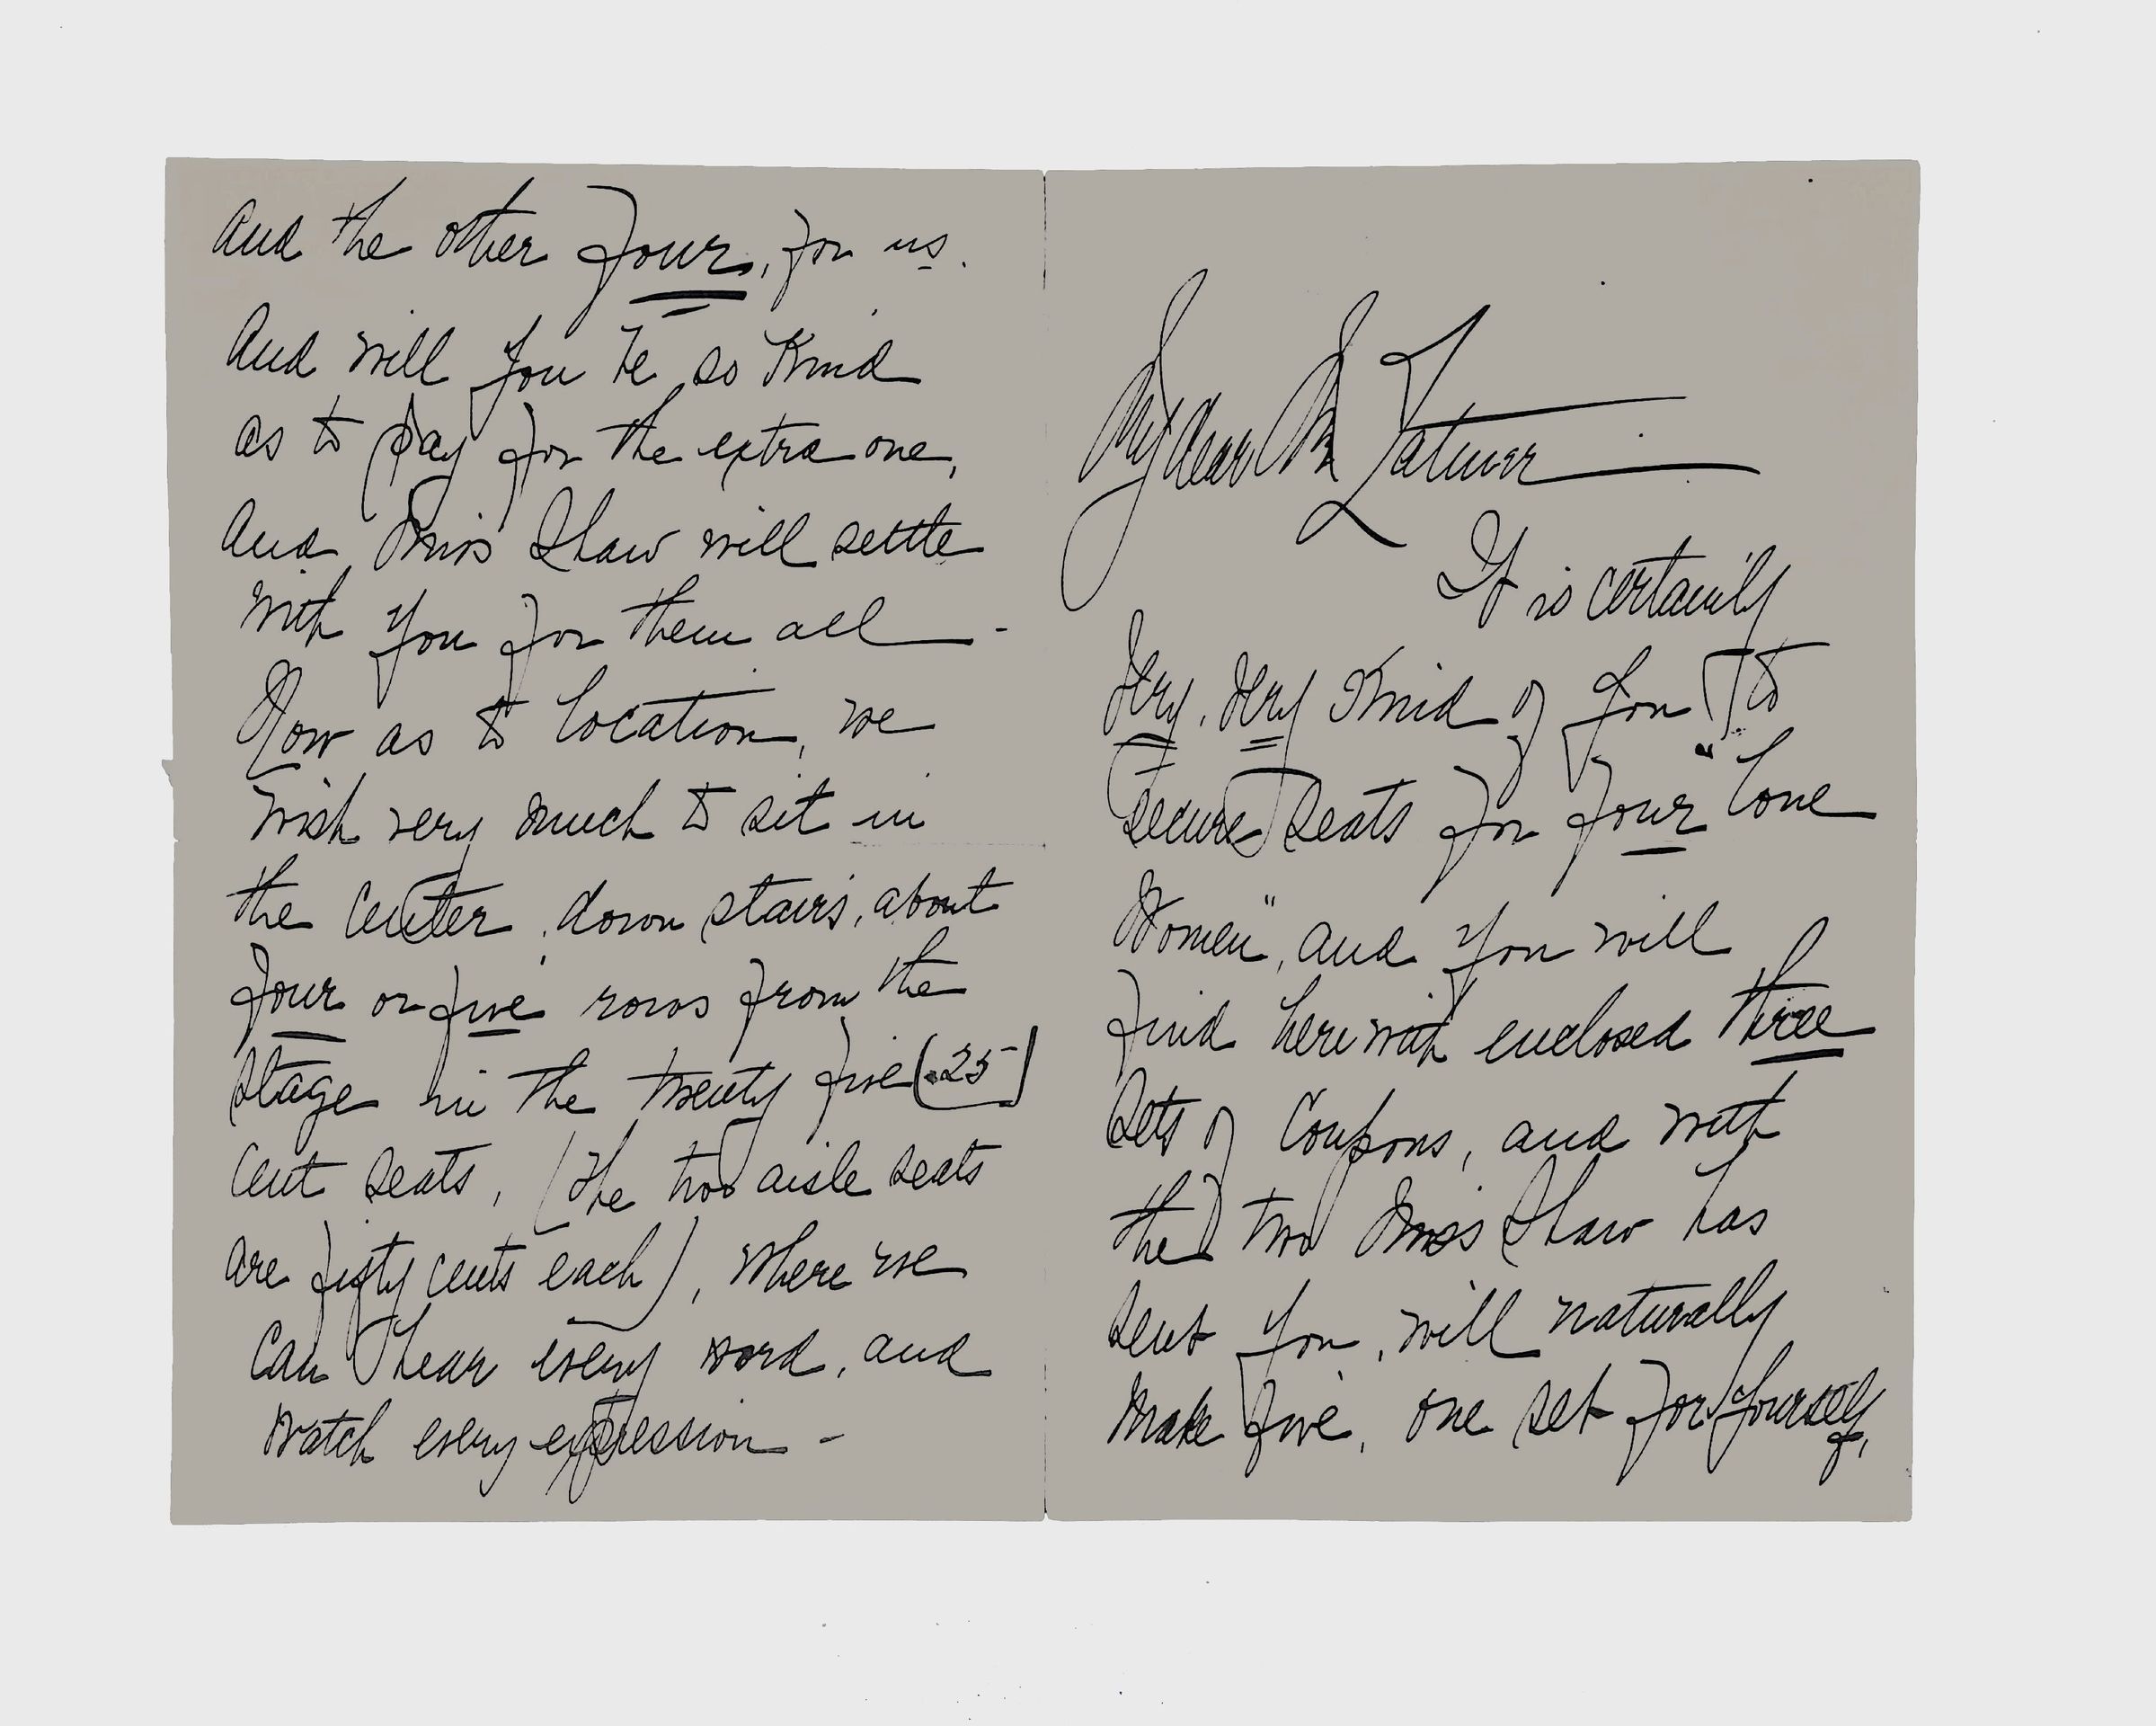 My dear Mr Latimer
It is certainly
Very, Very Kind of you to
secure seats for four "lone
Women", and you will
find herewith enclosed three
sets of Coupons, and with
the two Miss Shaw has
sent you, will naturally
make five, one set for yourself,
And the other four, for us.
And will you be so Kind
as to pay for the extra one,
And Miss Shaw will settle
with you for them all -
Now as to location, we
wish very much to sit in
the Center, down stairs, about
four or five rows from the
stage in the twenty five (.25)
cent seats, (the two aisle seats
are fifty cents each), where we
can hear every word, and
watch every expression -